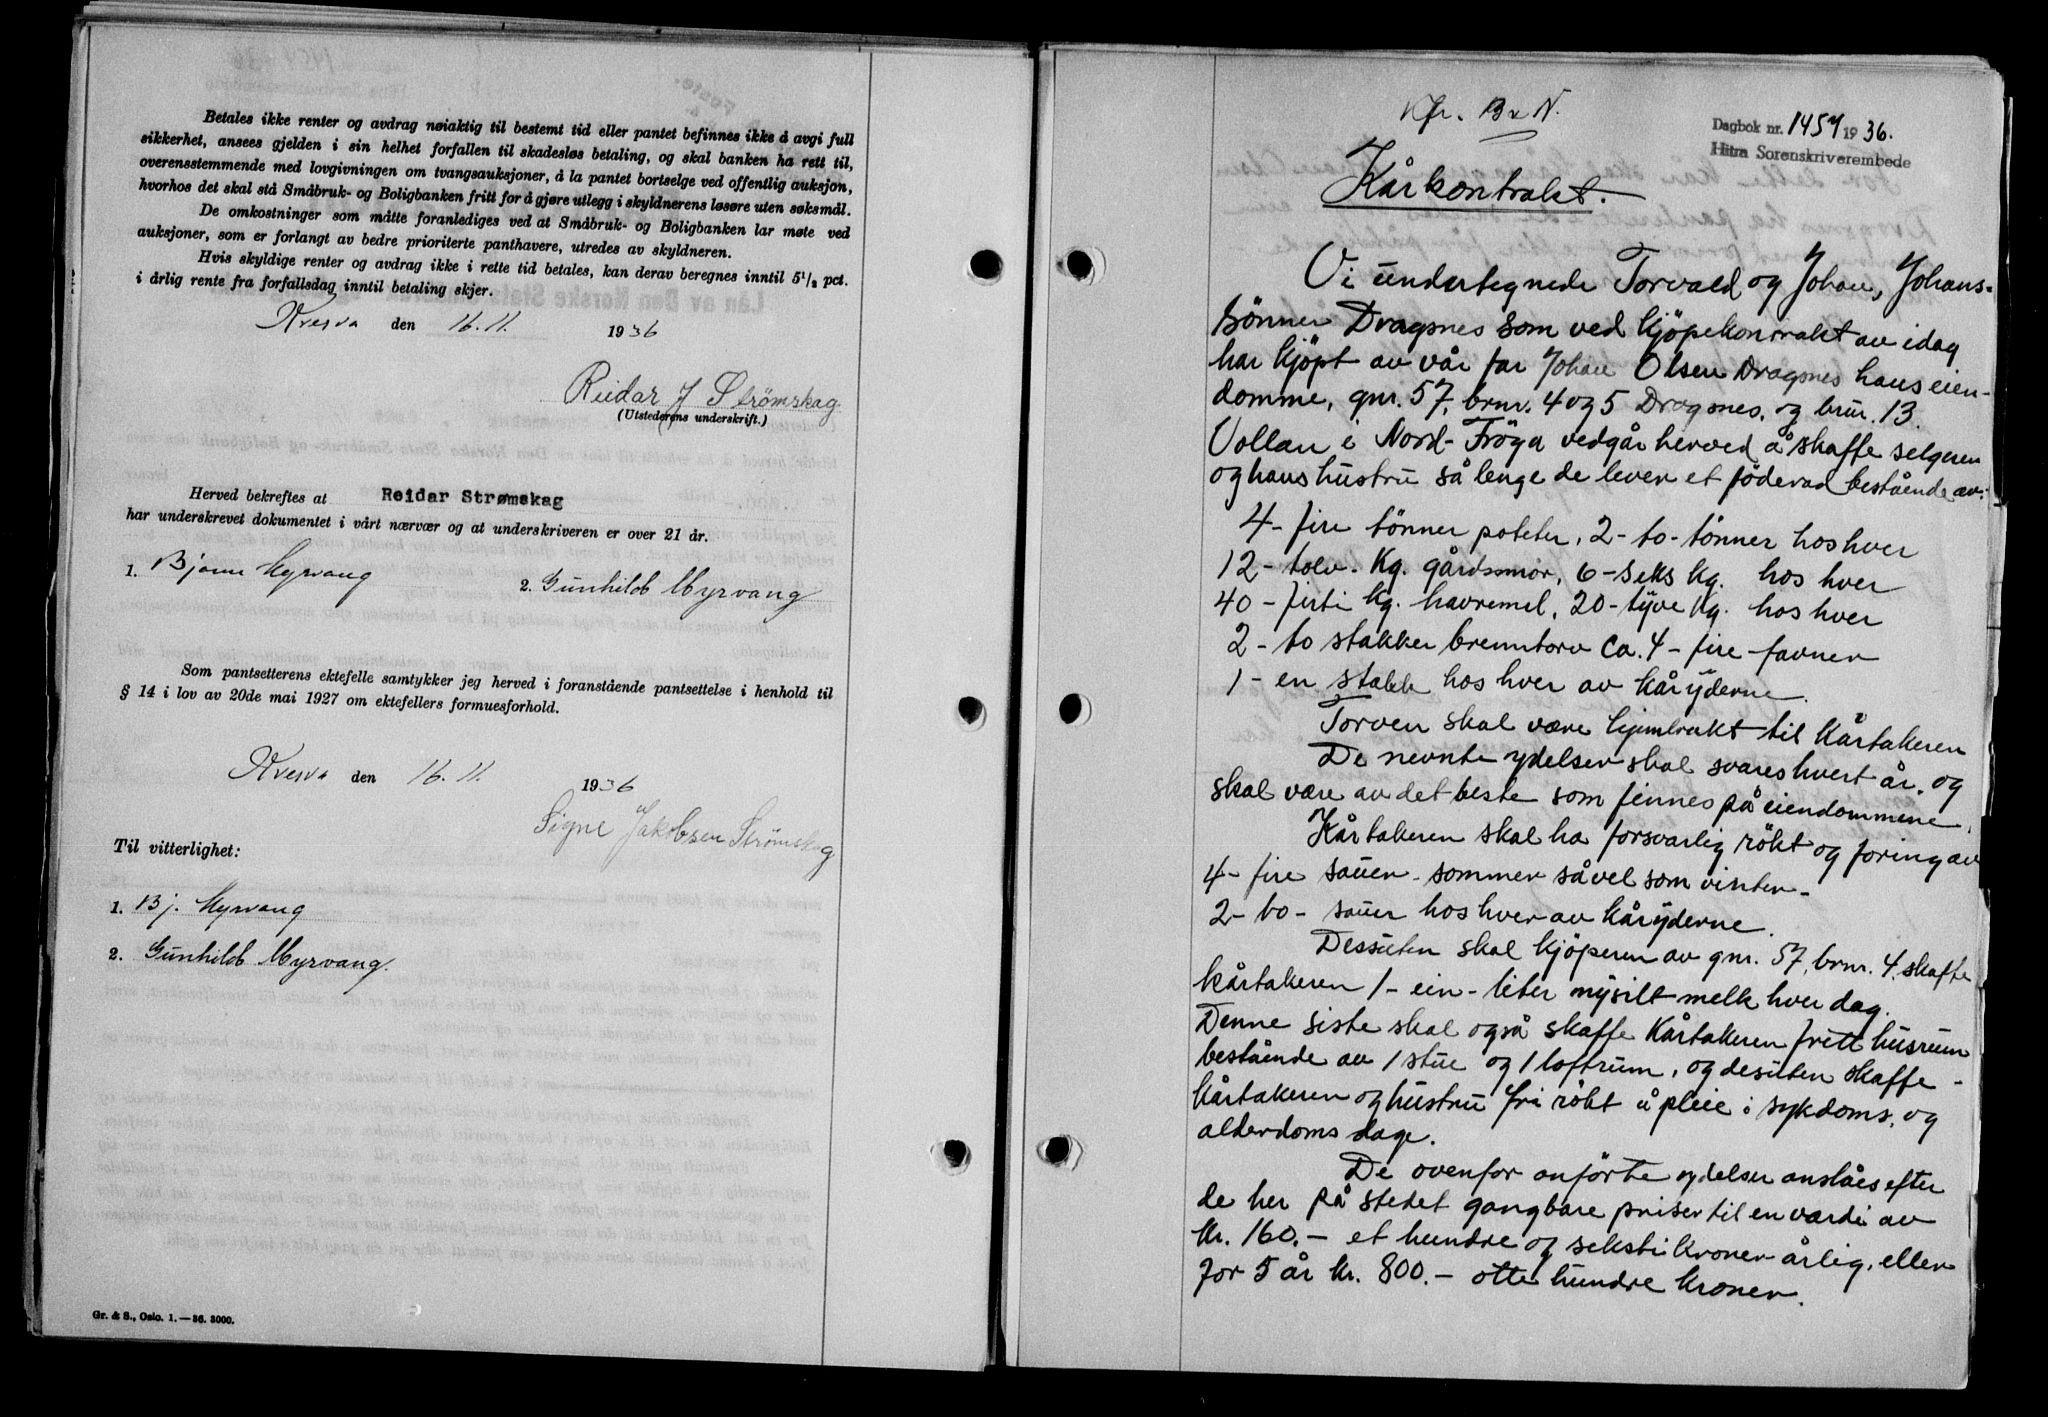 Betales ikke renter og avdrag nøiaktig til bestemt tid eller pantet befinnes ikke å avgi full
sikkerhet, ansees gjelden i sin helhet forfallen til skadesløs betaling, og skal banken ha rett til,
overensstemmende med lovgivningen om tvangsauksjoner, å la pantet bortselge ved offentlig auksjon,
hvorhos det skal stå Småbruk- og Boligbanken fritt for å gjøre utlegg i skyldnerens løsøre uten søksmål.
De omkostninger som måtte foranlediges ved at Småbruk- og Boligbanken lar møte ved
auksjoner, som er forlangt av bedre prioriterte panthavere, utredes av skyldneren.
Hvis skyldige renter og avdrag ikke i rette tid betales, kan derav beregnes inntil 5 1/2 pct.
i årlig rente fra forfallsdag inntil betaling skjer.
Kvenva den 16.11. 1936
Reidar J Strømskag
(Utstederens underskrift.)
Herved bekreftes at Reidar Strømskag
har underskrevet dokumentet i vårt nærvær og at underskriveren er over 21 år.
1. Bjarne Myrvang 2. Gunhild Myrvang
Som pantsetterens ektefelle samtykker jeg herved i foranstående pantsettelse i henhold til
§ 14 i lov av 20de mai 1927 om ektefellers formuesforhold.
Kvenva den 16.11. 1936
Signe Jakobsen Strømskag
Til vitterlighet:
1. Bj. Myrvang
2. Gunhild Myrvang.
Gr. & S., Oslo. 1.—36. 3000.
Kfr. B v N.
Dagbok nr. 1457 1936.
Hitra Sorenskriverembede
Kårkontrakt.
Vi undertegnede Torvald og Johan, Johans-
sønner Dragsnes som ved kjöpekontrakt av idag
har kjöpt av vår far Johan Olsen Dragsnes hans eien-
domme, gnr. 57, brnr. 4 og 5 Dragsnes, og brnr. 13
Vollan i Nord-Fröya vedgår herved å skaffe selgeren
og hans hustru så lenge de lever et föderåd bestående av:
4 - fire tönner poteter, 2 - to - tönner hos hver
12 - tolv. Kg. gårdssmør, 6 - seks kg. hos hver
40 - firti kg. havremel, 20 - tyve kg. hos hver
2 - to stakker brenntorv ca. 4 - fire - favner
1 - en stakk hos hver av kåryderne.
Torven skal være hjemtrukt til kårtakeren
De nevnte ydelser skal svares hvert år. og
skal være av det beste som finnes på eiendommene.
Kårtakeren skal ha forsvarlig rökt og foring av
4 - fire sauer - sommer såvel som vinter -
2 - to - sauer hos hver av kåryderne.
Dessuten skal kjöperen av gnr. 57, brnr. 4, skaffe
kårtakeren 1 - ein - liter nysilt melk hver dag.
Denne siste skal også skaffe kårtakeren fritt husrum
bestående av 1 stue og 1 loftrum, og desuten skaffe -
kårtakeren og hustru fri rökt å pleie i sykdoms, og
alderdoms dage.
De ovenfor anförte ydelser anslåes efter
de her på stedet gangbare priser til en værdi av
kr. 160. - et hundre og seksti kroner årlig, eller
for 5 år kr. 800. - otte hundre kroner.